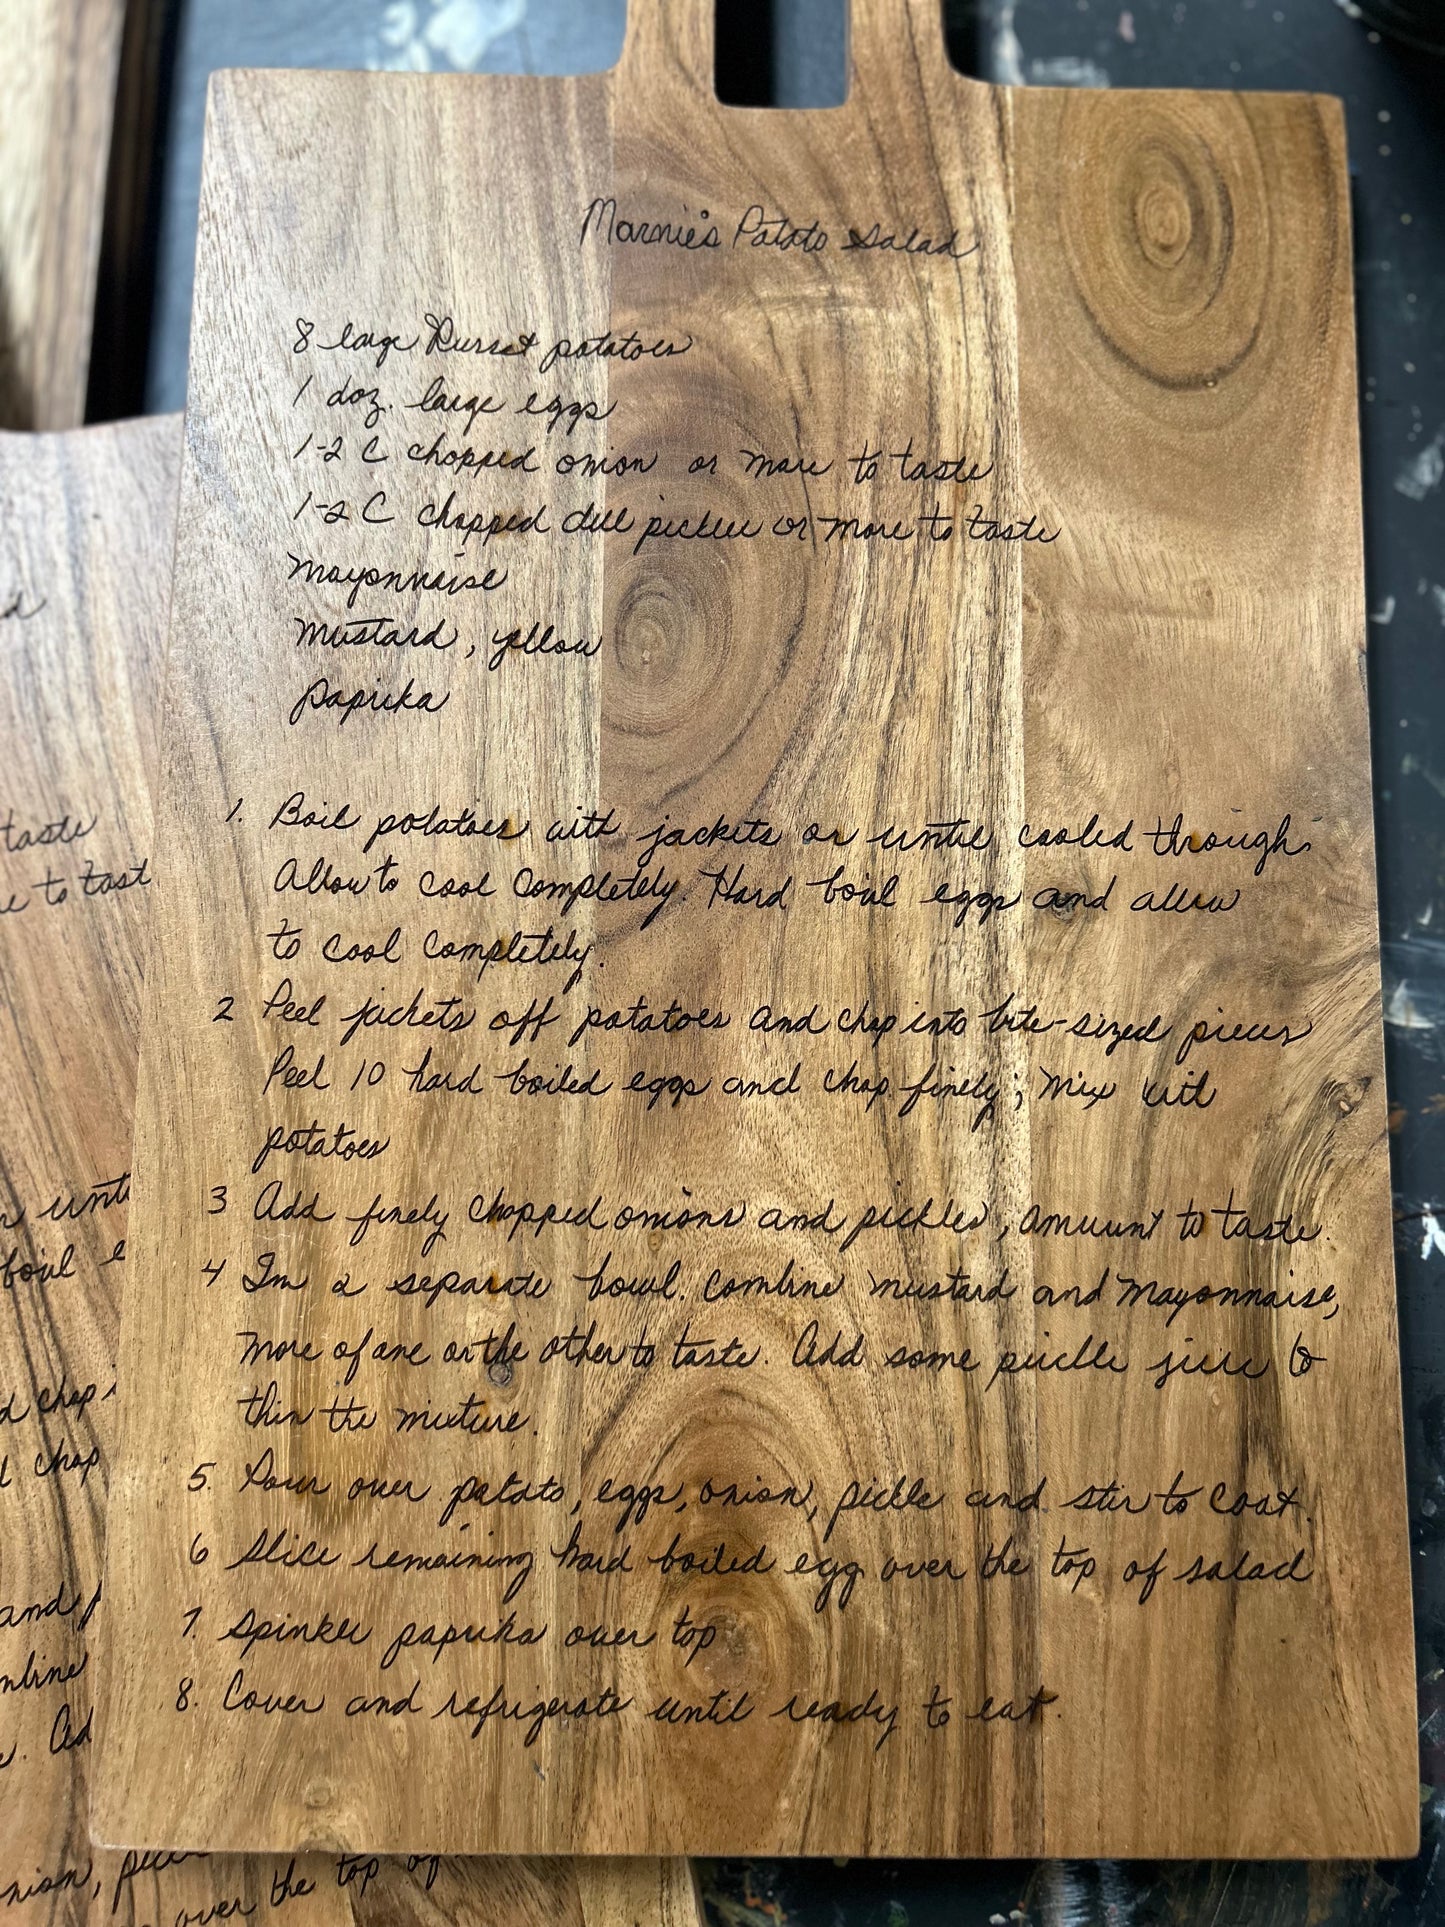 Marnie's Potato Salad
8 large Russet potatoes
1 doz. large eggs
1-2 C chopped onion or more to taste
1-2 C chopped dill pickles or more to taste
Mayonnaise
Mustard, yellow
Paprika
1. Boil potatoes with jackets on until cooked through.
Allow to cool completely. Hard boil eggs and allow
to cool completely.
2 Peel jackets off potatoes and chop into bite-sized pieces
Peel 10 hard boiled eggs and chop finely; mix with
potatoes
3 Add finely chopped onions and pickles, amount to taste.
4 In a separate bowl. Combine mustard and Mayonnaise,
more of one or the other to taste. Add some pickle juice to
thin the mixture.
5. Pour over potato, eggs, onion, pickle and stir to coat.
6 Slice remaining hard boiled egg over the top of salad
7. Sprinkle paprika over top
8. Cover and refrigerate until ready to eat.
taste
to tast
boil
chop
chop
and
. Ad
over the top of